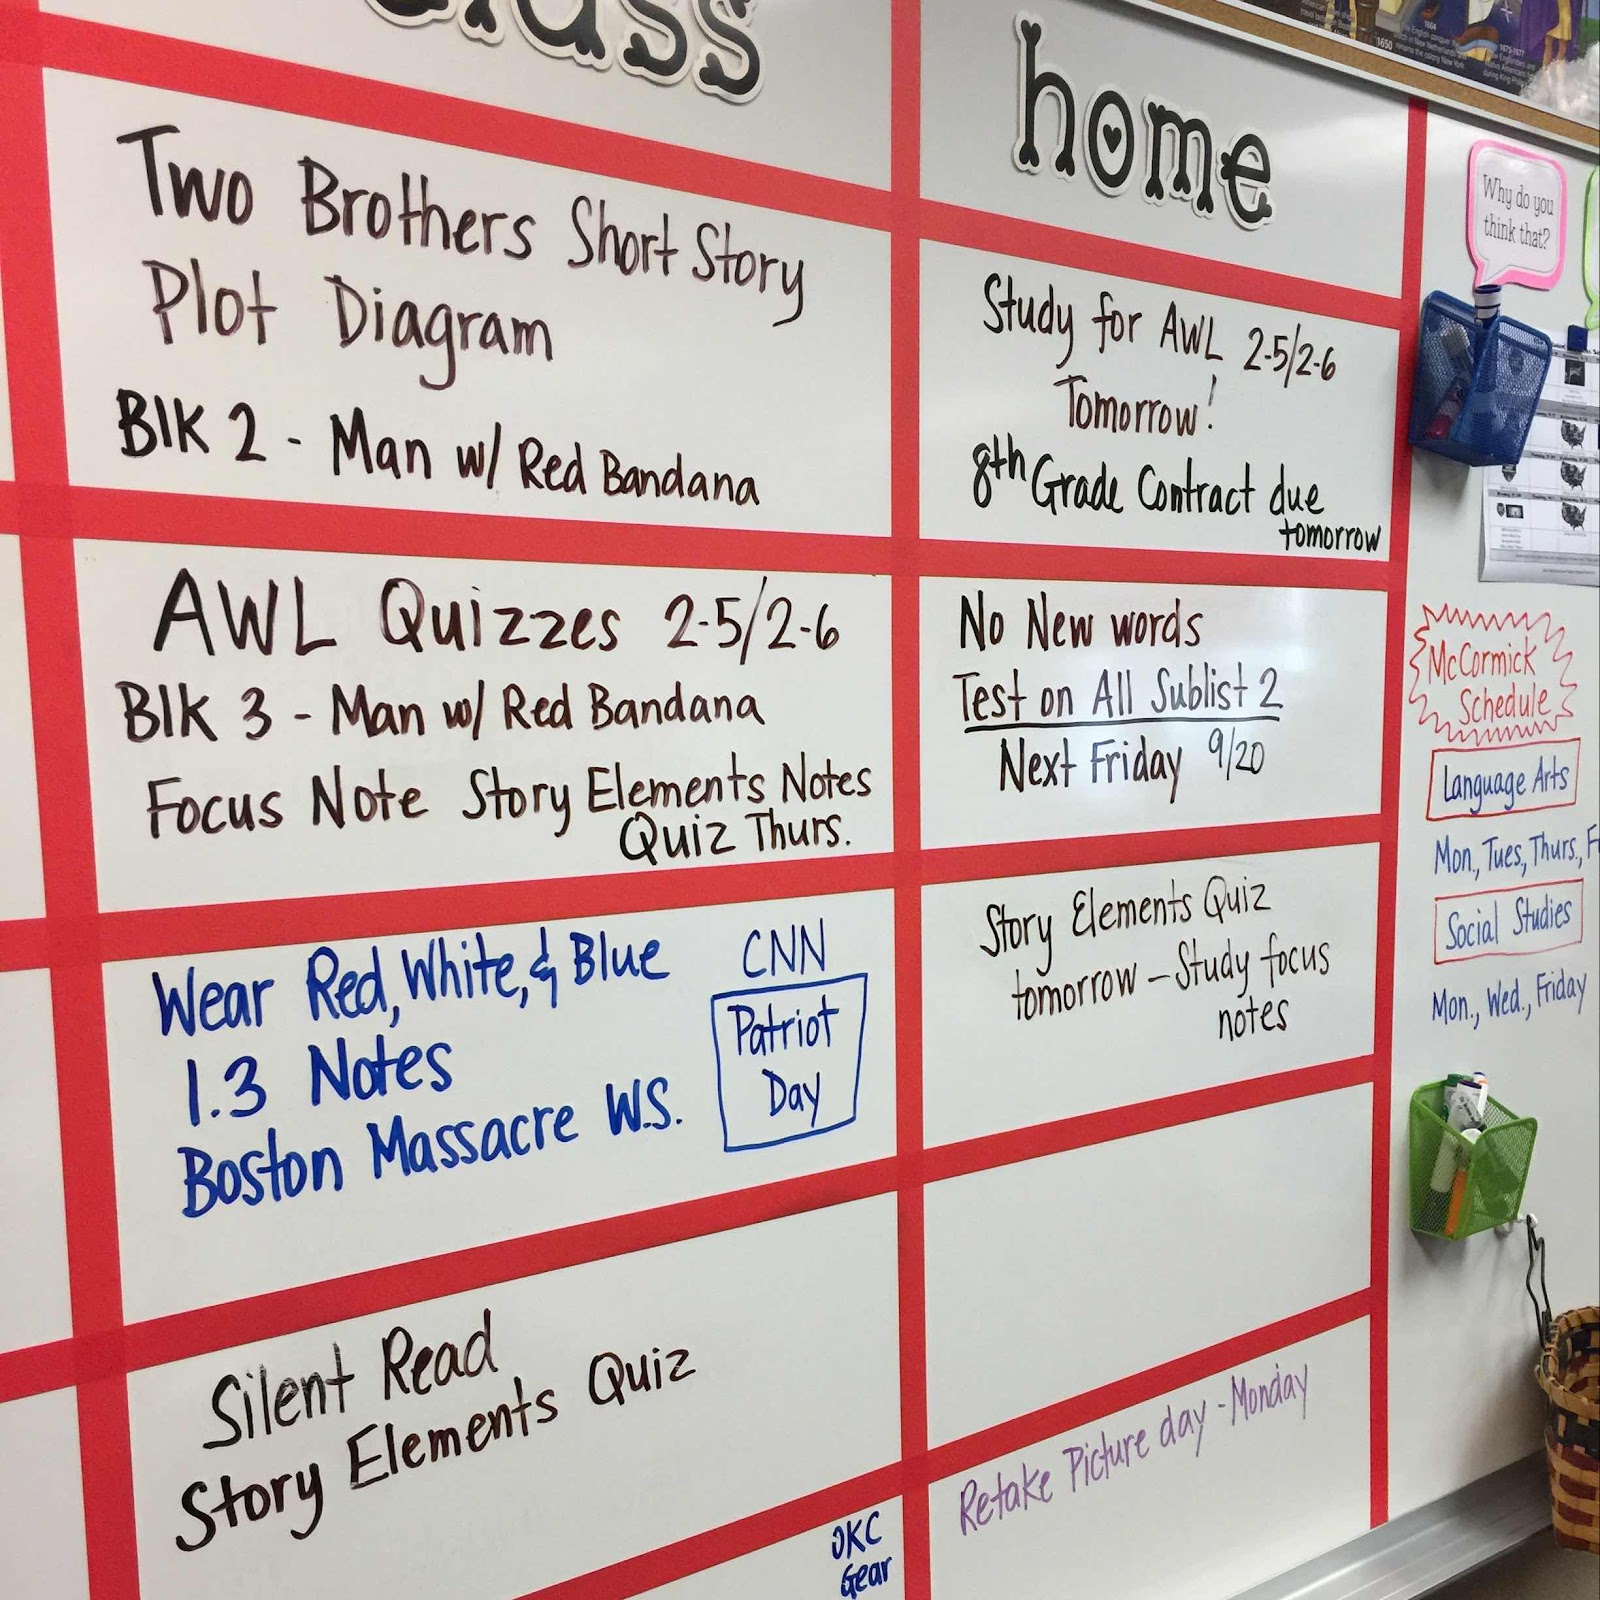 class
home
Two Brothers Short Story
Plot Diagram
Blk 2 - Man w/ Red Bandana
Study for AWL 2-5/2-6
Tomorrow!
8th Grade Contract due
tomorrow
AWL Quizzes 2-5/2-6
Blk 3 - Man w/ Red Bandana
Focus Note Story Elements Notes
Quiz Thurs.
No New words
Test on All Sublist 2
Next Friday 9/20
Wear Red, White, & Blue
1.3 Notes
Boston Massacre W.S.
CNN
Patriot
Day
Story Elements Quiz
tomorrow - Study focus
notes
Silent Read
Story Elements Quiz
Retake Picture day - Monday
OKC
Gear
Why do you
think that?
McCormick
Schedule
Language Arts
Mon., Tues, Thurs., F
Social Studies
Mon., Wed., Friday
1650
1664
1675-1677